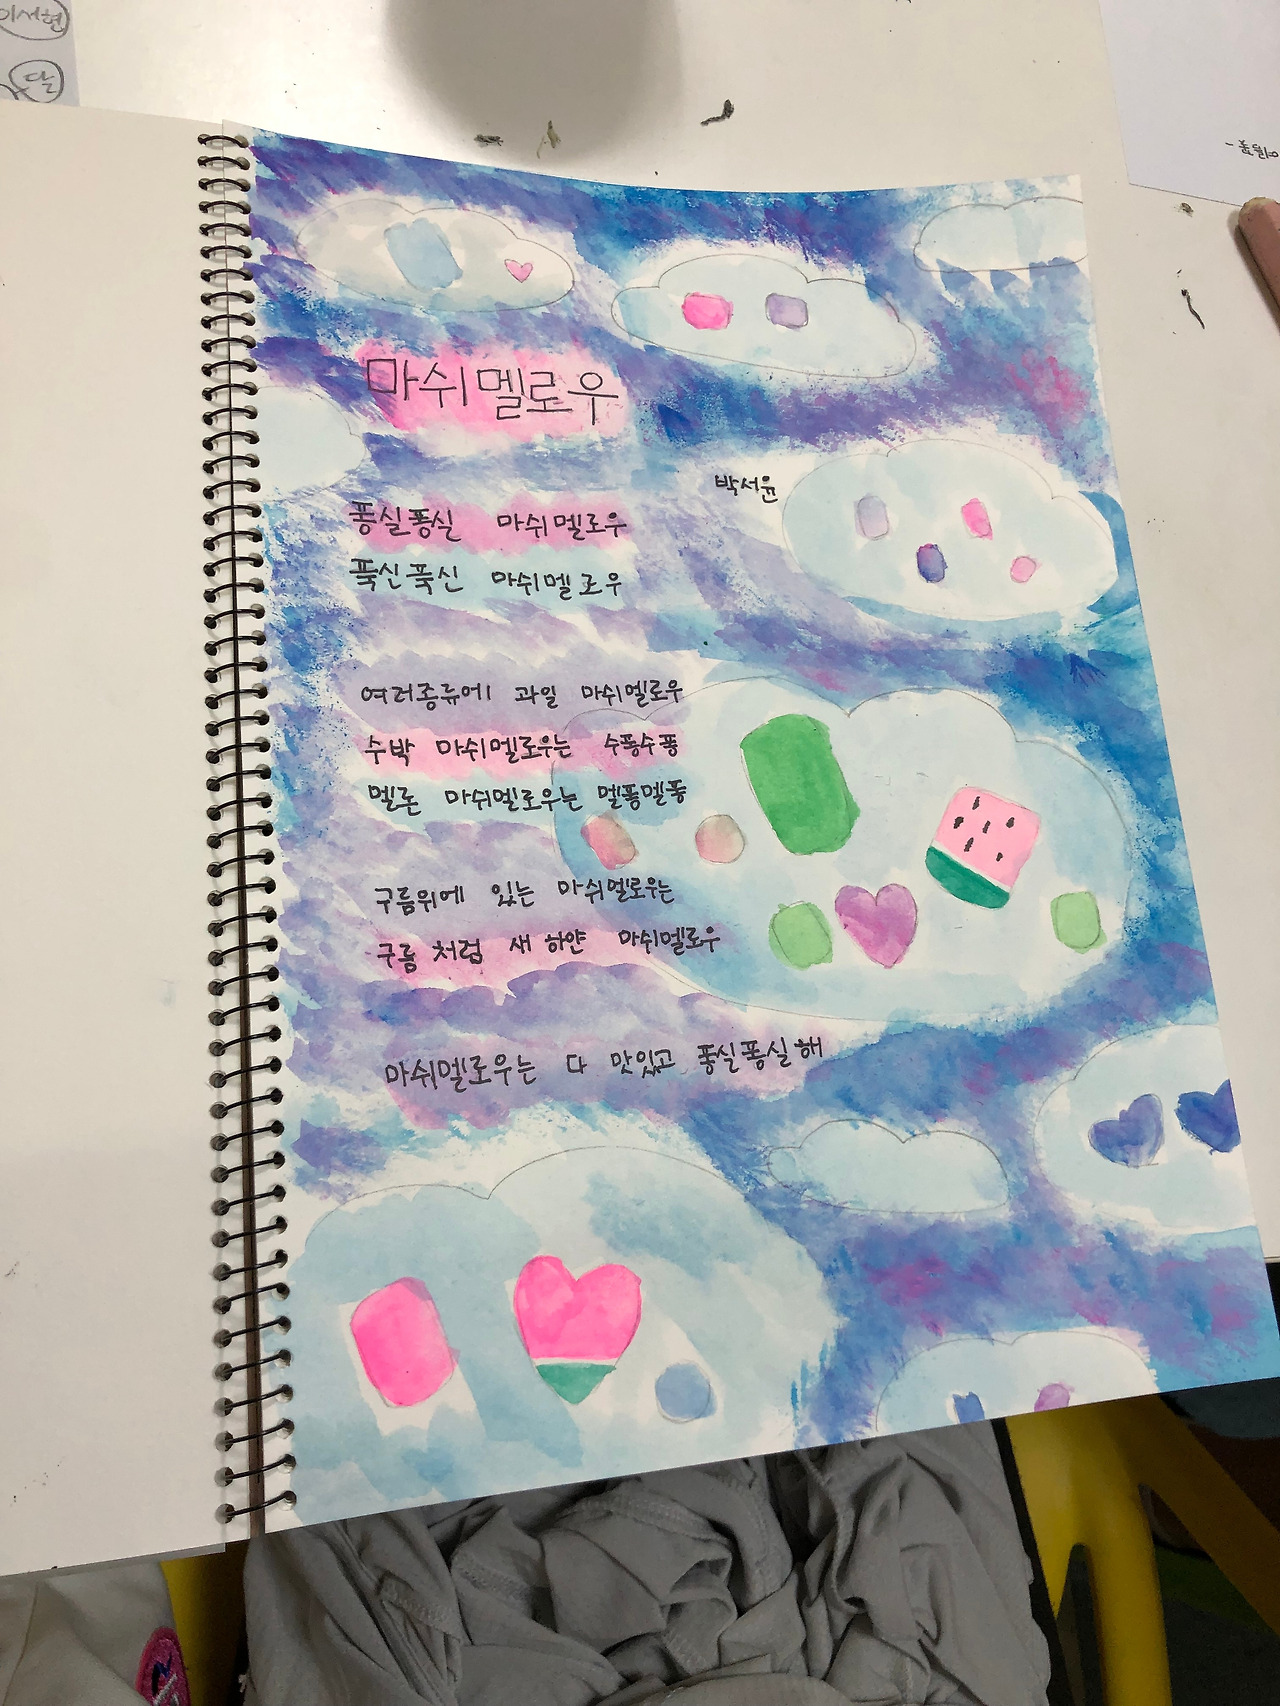 이서현
달
마쉬멜로우
박서윤
퐁실퐁실 마쉬멜로우
푹신푹신 마쉬멜로우
여러종류에 과일 마쉬멜로우
수박 마쉬멜로우는 수퐁수퐁
멜론 마쉬멜로우는 멜퐁멜퐁
구름위에 있는 마쉬멜로우는
구름 처럼 새 하얀 마쉬멜로우
마쉬멜로우는 다 맛있고 퐁실퐁실해